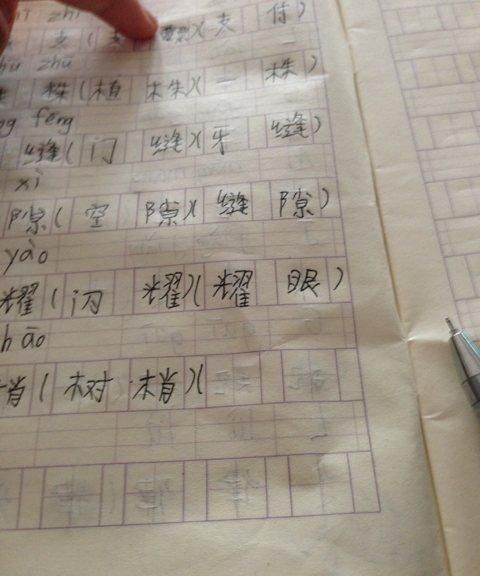 zhī
支(支 )(支付)
hū zhū
株(植株)(一株)
ng féng
缝(门缝)(牙缝)
xì
隙(空隙)(缝隙)
yào
耀(闪耀)(耀眼)
hāo
梢(树梢)(